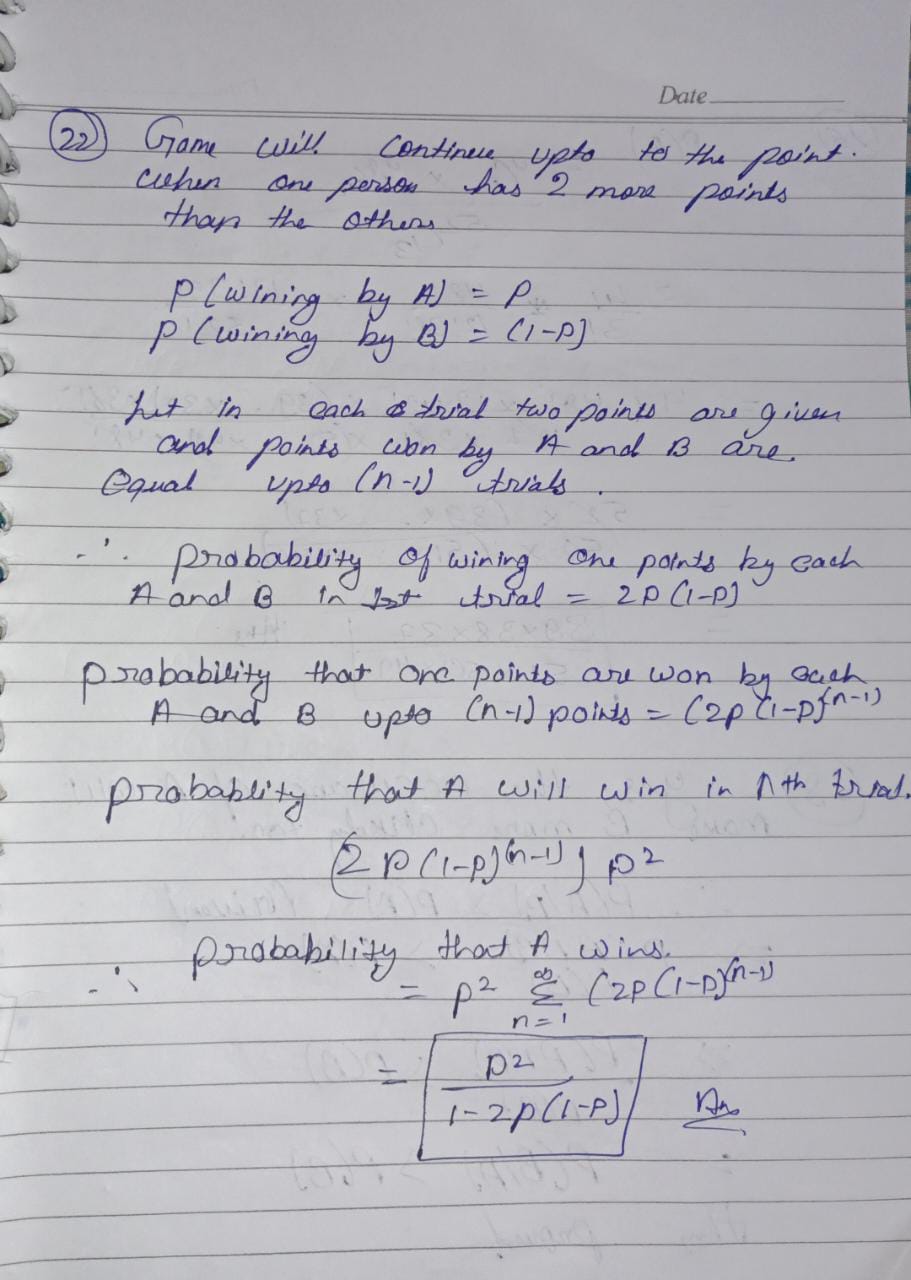 Date
22 Game will continue upto to the point.
when one person has 2 more points
than the others
P (wining by A) = P
P (wining by B) = (1-P)
Let in each trial two points are given
and points won by A and B are.
Equal upto (n-1) trials.
∴ probability of wining one points by each
A and B in 1st trial = 2P(1-P)
probability that one points are won by each
A and B upto (n-1) points = (2p(1-P))^(n-1)
probablity that A will win in nth trial.
(2P(1-P)^(n-1)) P²
∴ probability that A wins.
= p² ∞ Σ n=1 (2P(1-P))^(n-1)
= P² / 1-2p(1-P) Ans